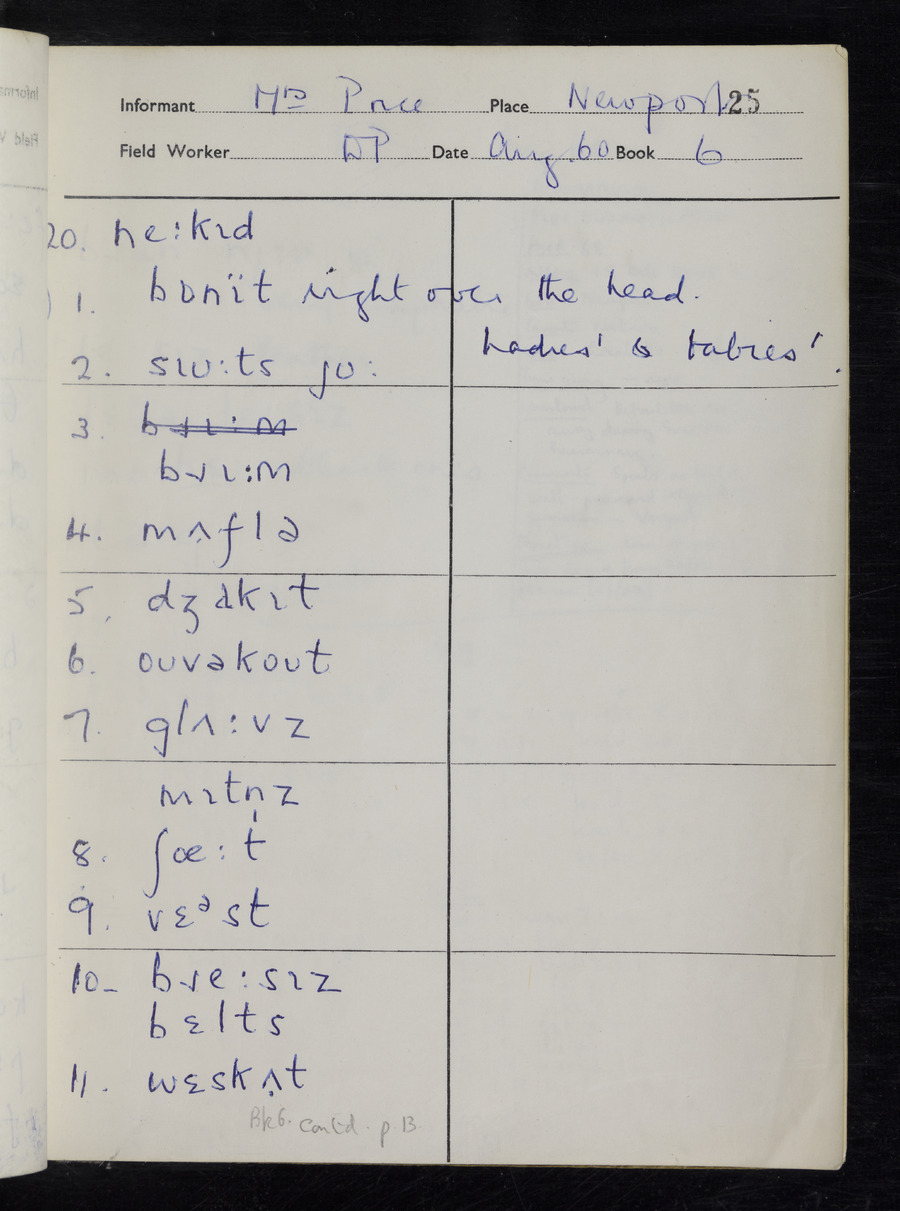 Informant Mrs Price Place Newport 25
Field Worker DP Date Aug. 60 Book 6
20. ne:kɪd
) 1. bɒnït right over the head.
Ladies' & babies'.
2. sɪʊ:ts jʊ:
3. bɹɪ:m
bɹɪ:m
4. mʌ̣flə
5. dʒakɪt
6. ouvəkout
7. glʌ:vz
mɪtn̩z
8. ʃœ:t
9. vɛᵊst
10. bɹe:sɪz
bɛlts
11. wɛskʌ̣t
Bk6. Contd. p 13.